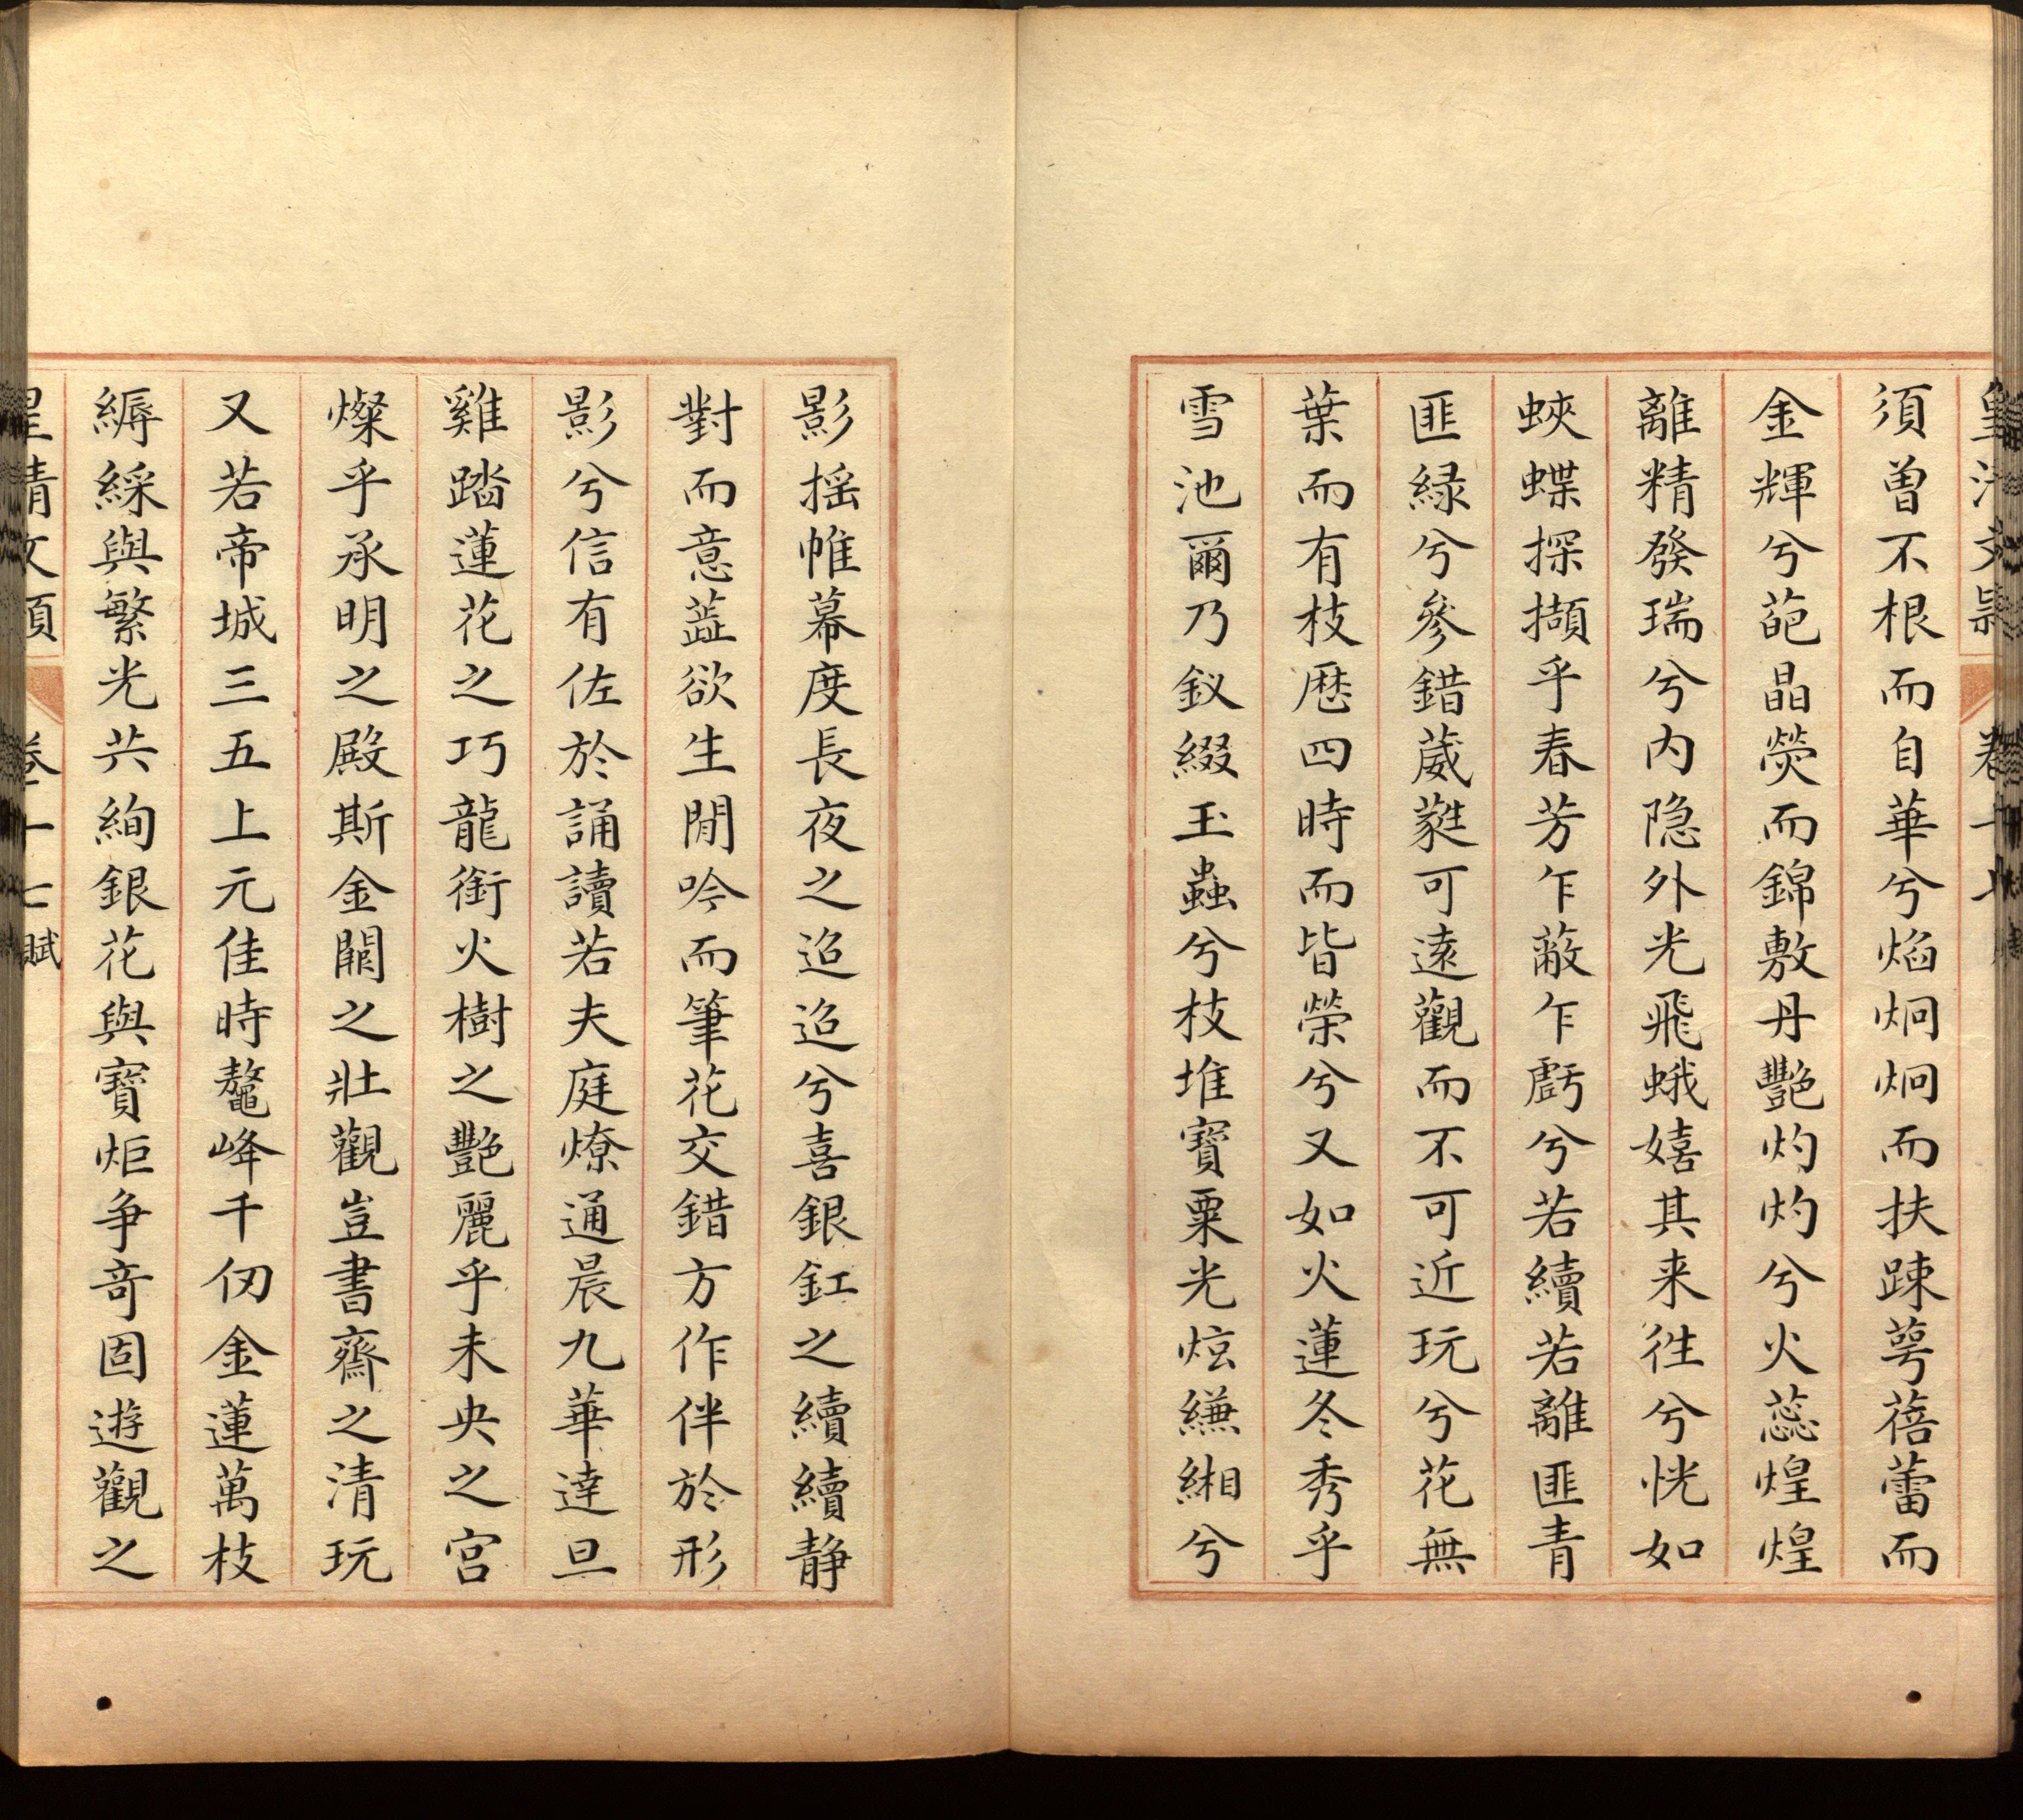 皇清文穎 卷十七
須曽不根而自華兮焰炯炯而扶踈萼蓓蕾而
金輝兮葩晶熒而錦敷丹艷灼灼兮火蕊煌煌
離精發瑞兮内隐外光飛蛾嬉其来徃兮恍如
蛺蝶探擷乎春芳乍蔽乍虧兮若續若離匪青
匪緑兮參錯葳蕤可遠觀而不可近玩兮花無
葉而有枝歴四時而皆榮兮又如火蓮冬秀乎
雪池爾乃釵綴玉蟲兮枝堆寶粟光炫縑緗兮
影揺帷幕度長夜之迢迢兮喜銀釭之續續静
對而意蕋欲生閒吟而筆花交錯方作伴於形
影兮信有佐於誦讀若夫庭燎通晨九華達旦
雞踏蓮花之巧龍銜火樹之艷麗乎未央之宫
燦乎承明之殿斯金闕之壯觀豈書齋之清玩
又若帝城三五上元佳時鼇峰千仞金蓮萬枝
縟綵與繁光共絢銀花與寶炬争奇固遊觀之
皇清文穎 卷十七 賦